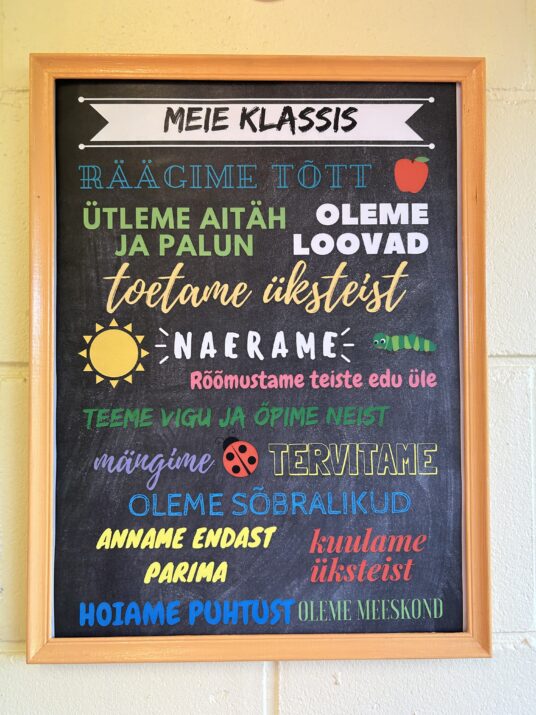 MEIE KLASSIS
RÄÄGIME TÕTT
ÜTLEME AITÄH
JA PALUN
OLEME
LOOVAD
toetame üksteist
NAERAME
Rõõmustame teiste edu üle
TEEME VIGU JA ÕPIME NEIST
mängime
TERVITAME
OLEME SÕBRALIKUD
ANNAME ENDAST
PARIMA
kuulame
üksteist
HOIAME PUHTUST
OLEME MEESKOND